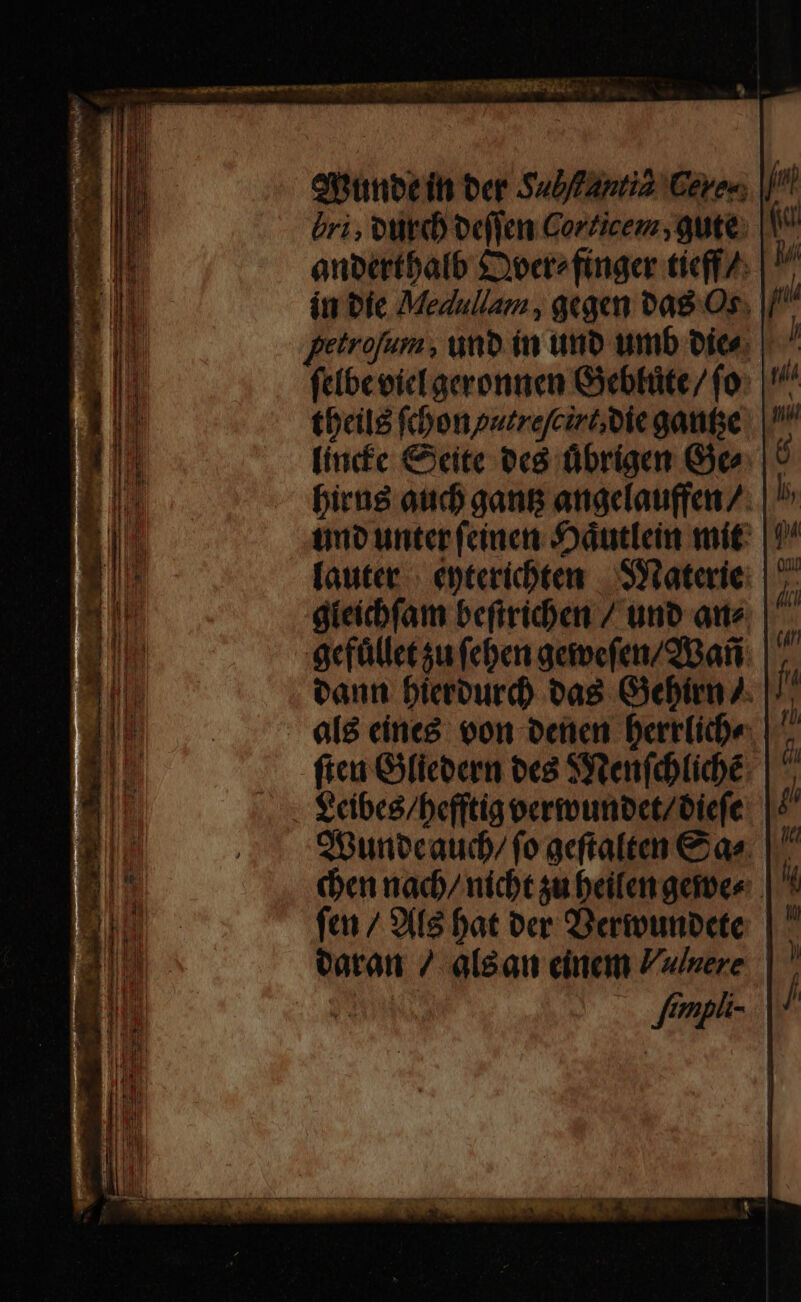 Wunde in der Subſtantiâ Cere⸗
bri, durch deſſen Corticem, gute
anderthalb Qver⸗finger tieff /
in die Medullam, gegen das Os
petroſum, und in und umb die⸗
ſelbe viel geronnen Geblüte / ſo
theils ſchon putreſcirt, die gantze
lincke Seite des übrigen Ge⸗
hirns auch gantz angelauffen /
und unter ſeinen Häutlein mit
lauter eyterichten Materie
gleichſam beſtrichen / und an⸗
gefüllet zu ſehen geweſen / Wañ
dann hierdurch das Gehirn /
als eines von denen herrlich⸗
ſten Gliedern des Menſchlichẽ
Leibes / hefftig verwundet / dieſe
Wunde auch / ſo geſtalten Sa⸗
chen nach / nicht zu heilen gewe⸗
ſen / Als hat der Verwundete
daran / als an einem Vulnere
ſimpli-